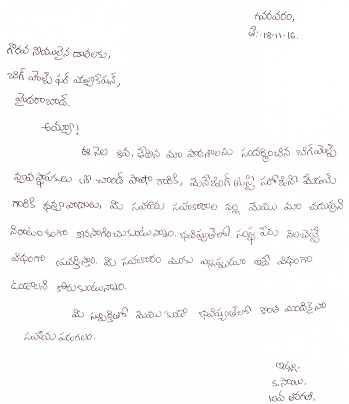 గవరవరం,
తే:-18-11-16.
గౌరవనీయులైన దాతలకు,
బిగ్ హెల్ప్ ఫర్ ఎడ్యుకేషన్,
హైదరాబాద్.
అయ్యా!
ఈ నెల తేదిన మా పాఠశాలను సందర్శించిన బిగ్ హెల్ప్
వ్యవస్థాపకులు శ్రీ చాంద్ పాషా గారికి, మేనేజింగ్ ట్రస్టీ సరోజిని మేడమ్
గారికి ధన్యవాదాలు, మీ సహాయ సహకారాల వల్ల మేము మా చదువుని
నిరాటంకంగా కొనసాగించుకుంటున్నాం. భవిష్యత్తులో సంస్థ పేరు నిలబెట్టే
విధంగా మీ సహకారం మాకు ఎల్లప్పుడూ ఇదే విధంగా
ఉండాలని కోరుకుంటున్నాం.
మీ స్ఫూర్తితో మేము కూడా భవిష్యత్తులో కొంత మందికైనా
సహాయ పడగలం.
ఇట్లు,
కె. సాయి,
10వ తరగతి.